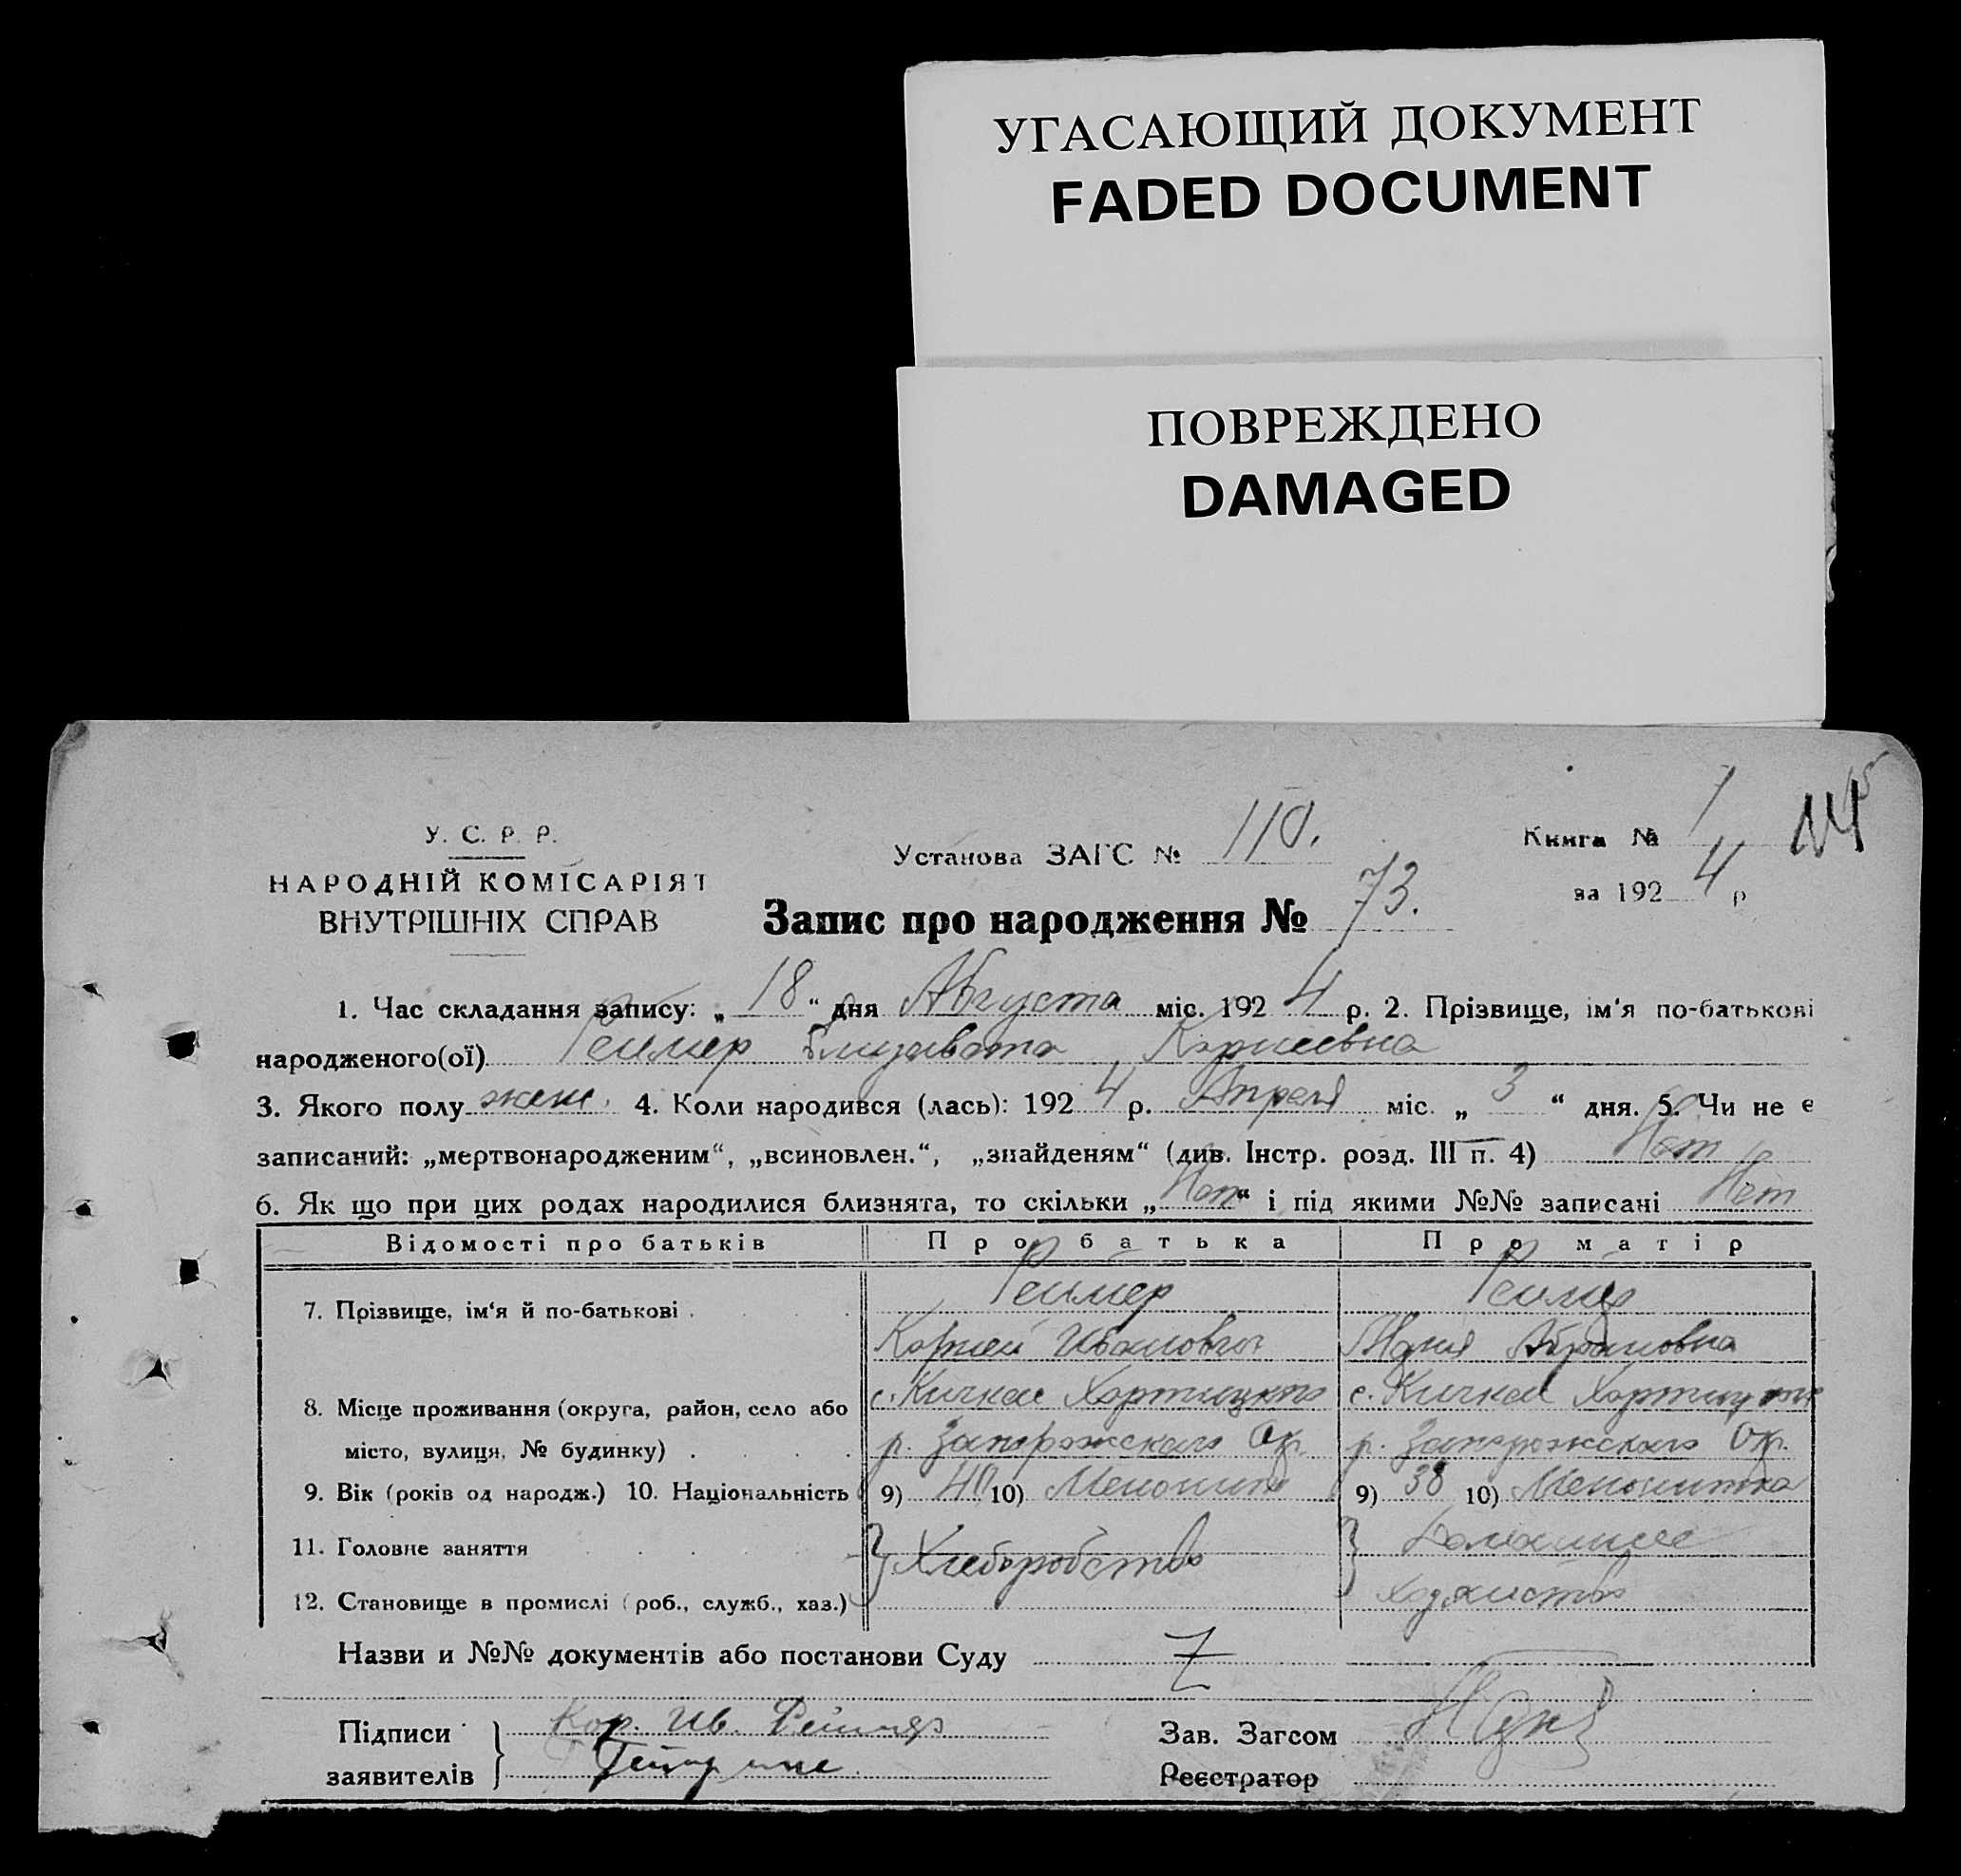 УГАСАЮЩИЙ ДОКУМЕНТ
FADED DOCUMENT
ПОВРЕЖДЕНО
DAMAGED
У. С. Р. Р.
НАРОДНІЙ КОМІСАРІЯТ
ВНУТРІШНІХ СПРАВ
Установа ЗАГС № 110.
Книга № 1
за 1924 р
Запис про народження № 73.
1. Час складання запису: „18“ дня Августа міс. 1924 р. 2. Прізвище, ім'я по-батькові
народженого(ої) Реимер Елизавета Корнеевна
3. Якого полу жен. 4. Коли народився (лась): 1924 р. Апреля міс. „3“ дня. 5. Чи не є
записаний: „мертвонародженим“, „всиновлен.“, „знайденям“ (див. Інстр. розд. III п. 4) Нет
6. Як що при цих родах народилися близнята, то скільки „Нет“ і під якими №№ записані Нет
Відомості про батьків Про батька Про матір
7. Прізвище, ім'я й по-батькові . Реимер Реимер
Корней Иванович Мария Абрамовна
8. Місце проживання (округа, район, село або с. Кичкас Хортицкого с. Кичкас
місто, вулиця, № будинку) . р. Запорожского Окр. р. Запорожского Окр.
9. Вік (років од народж.) 10. Національність 9) 40 10) Менонит 9) 38 10) Менонитка
11. Головне заняття Хлеборобство Домашнее
12. Становище в промислі (роб., служб., хаз.) хозяйство
Назви и №№ документів або постанови Суду Z
Підписи Кор. Ив. Реимер Зав. Загсом
заявителів Реєстратор